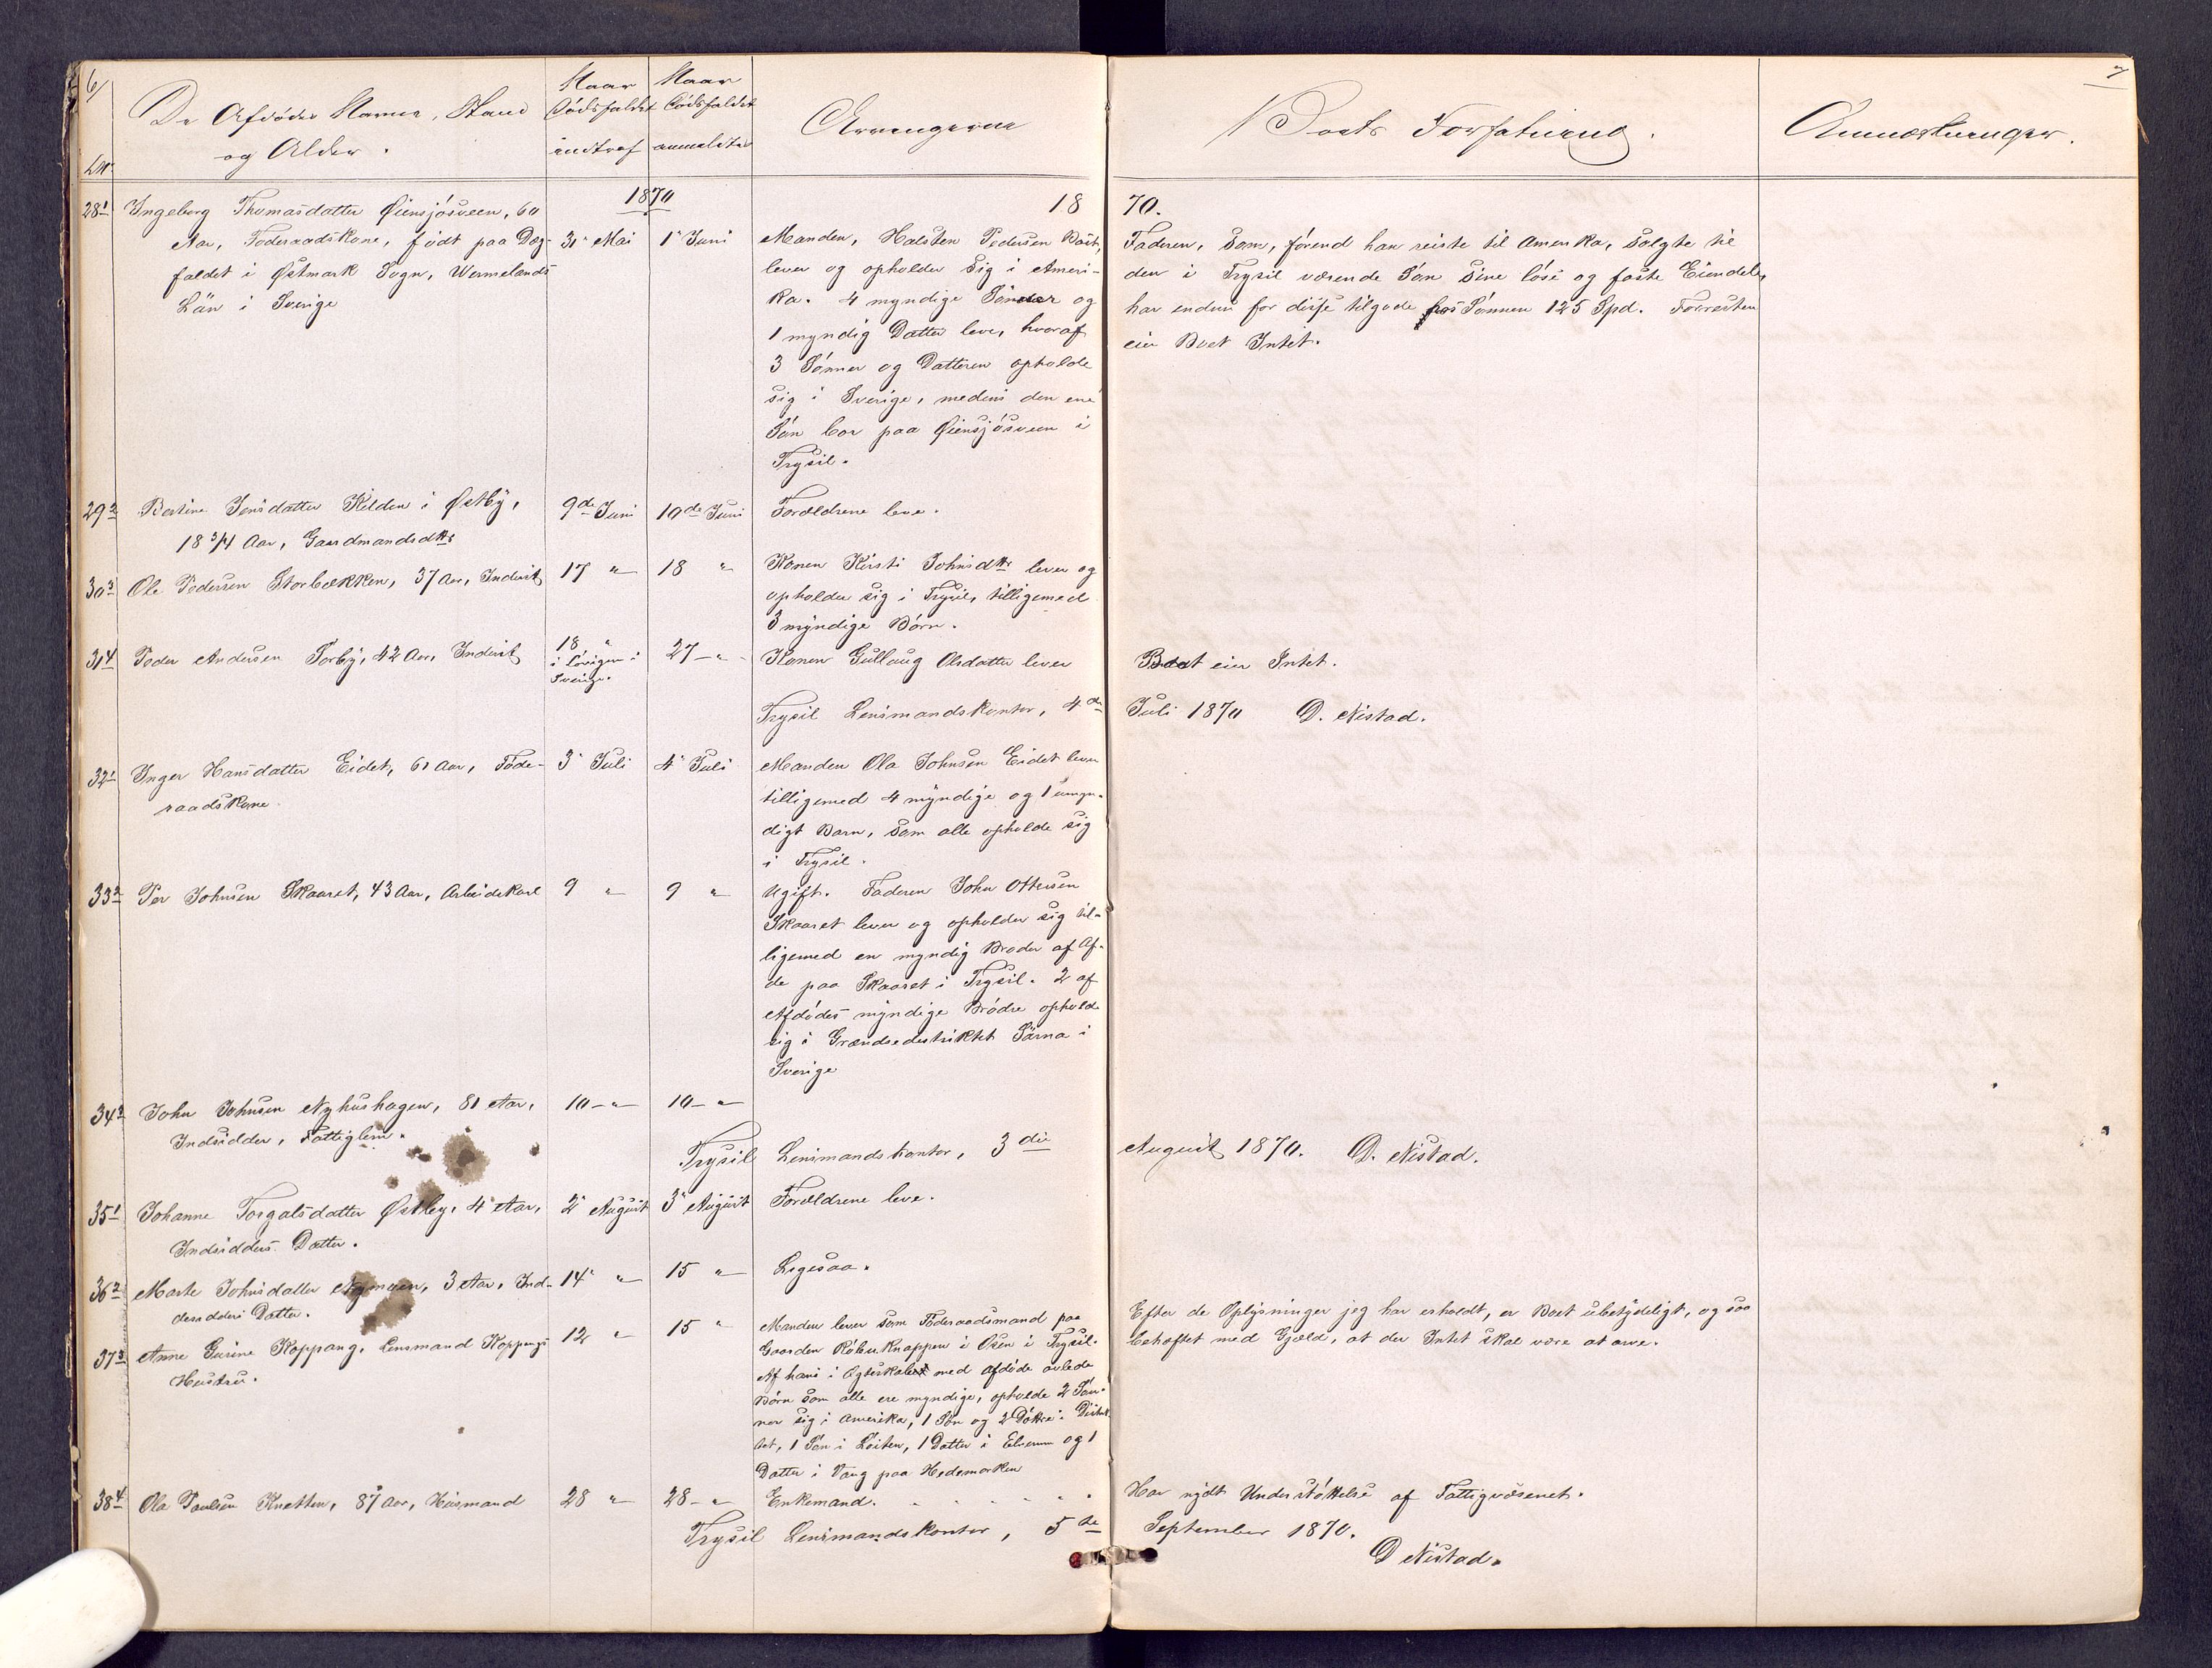 6
De Afdødes Navne, Stand
og Alder.
Naar
Dødsfaldet
indtraf
Naar
Dødsfaldet
anmeldtes
Arvingerne
Boets Forfatning.
Anmærkninger.
7
Lnr.
1870
1870.
28 1 Ingeborg Thomasdatter Øiensjøsveen, 60
Aar, Foderaadskone, født paa Dag-
faldet i Østmark Sogn, Wermelands
Län i Sverige
31 Mai
1 Juni
Manden, Halsten Pedersen
lever og opholder sig i Ameri-
ka. 4 myndige Sønner og
1 myndig Datter lever, hvoraf
3 Sønner og Datteren opholde
sig i Sverige, medens den ene
Søn bor paa Øiensjøsveen i
Trysil.
Faderen, som, førend han reiste til Amerika, solgte til
den i Trysil værende Søn sine løse og faste Eiendele,
har endnu for disse tilgode hos Sønnen 125 Spd. Forresten
eier Boet Intet.
29 2 Bertine Jensdatter Kilden i Østby,
18 3/4 Aar, Gaardmandsdttr
9de Juni
10de Juni
Forældrene leve.
30 3 Ole Pedersen Storbækken, 37 Aar, Inderst
17 "
18 "
Konen Kirsti Johnsdttr lever og
opholder sig i Trysil, tilligemed
3 myndige Børn.
31 4 Peder Andersen Torby, 42 Aar, Inderst
18 "
i i
Sverige.
27 - "
Konen Gullaug Olsdatter lever
Boet eier Intet.
Trysil Lensmandskontor, 4de Juli 1870 D. Nistad.
32 1 Inger Hansdatter Eidet, 61 Aar, Føde-
raadskone.
3 Juli
4 Juli
Manden Ola Johnsen Eidet lever
tilligemed 4 myndige og 1 umyn-
digt Barn, som alle opholde sig
i Trysil.
33 2 Per Johnsen Skaaret, 43 Aar, Arbeidskarl
9 "
9 "
Ugift. Faderen John Ottersen
Skaaret lever og opholder sig til-
ligemed en myndig Broder af Af-
de paa Skaaret i Trysil. 2 af
Afdødes myndige Brødre opholde
sig i Grændsedistriktet Särna i
Sverige
34 3 John Johnsen Nyhushagen, 81 Aar,
Indsidder, Fattiglem.
10 - "
10 - "
Trysil Lensmandskontor, 3die August 1870. D. Nistad.
35 1 Johanne Torgalsdatter Østby, 4 Aar,
Indsidders Datter.
2 August
3 August
Forældrene leve.
36 2 Marte Johnsdatter Nymoen, 3 Aar, Ind-
Datter.
14 "
15 "
Ligesaa.
37 3 Anne Gurine Koppang, Lensmand Koppangs
Hustru.
12 "
15 "
Manden lever som Føderaadsmand paa
Gaarden Røbæknappen i Osen i Trysil.
Af hans i Ægteskabet med afdøde avlede
Børn som alle ere myndige, opholde 2 Søn-
ner sig i Amerika, 1 Søn og 2 Døttre i Distrik-
tet, 1 Søn i Løiten, 1 Datter i Elverum og 1
Datter i Vang paa Hedemarken
Efter de Oplysninger jeg har erholdt, er Boet ubetydeligt, og saa
behæftet med Gjæld, at der Intet skal være at arve.
38 4 Ola Paulsen Knetten, 87 Aar, Husmand
28 "
28 - "
Enkemand.
Har nydt Understøttelse af Fattigvæsenet.
Trysil Lensmandskontor, 5te September 1870.
D Nistad.